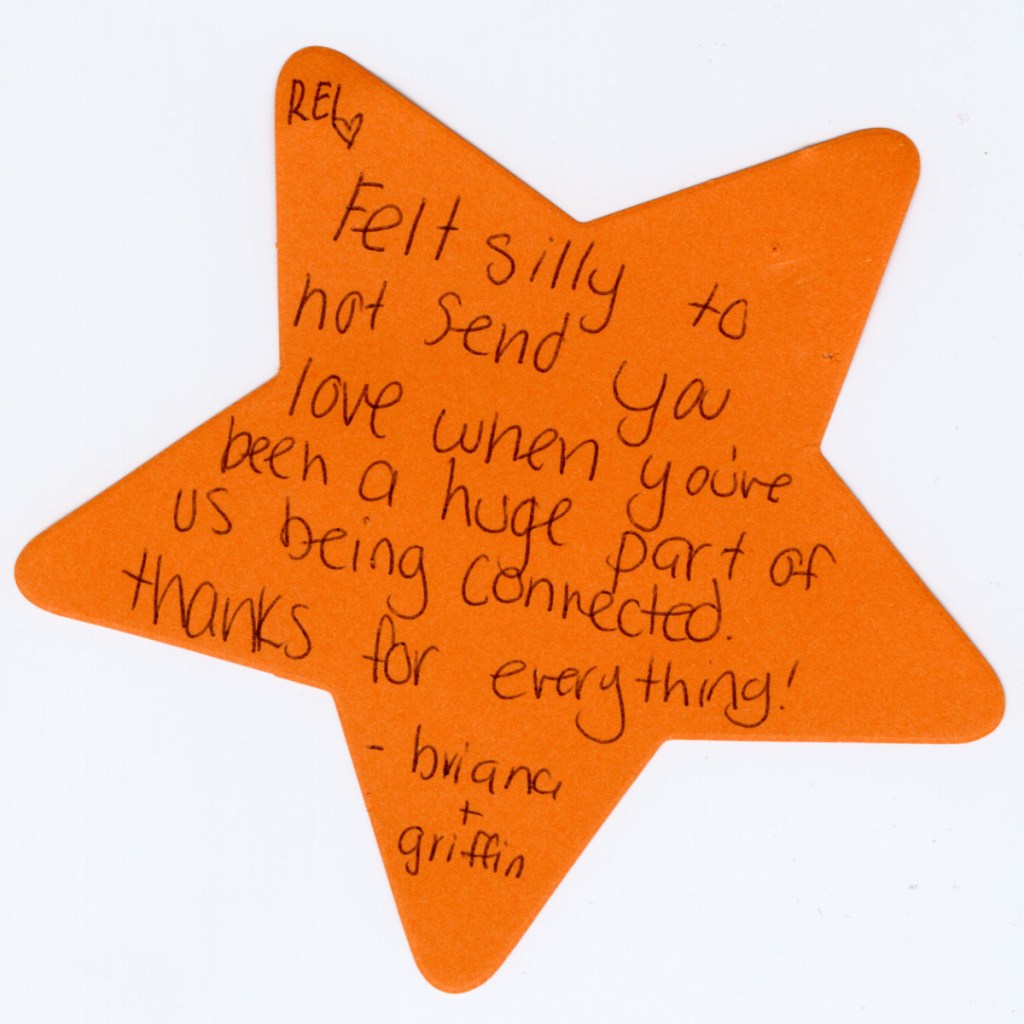 REL♡
Felt silly to
not send you
love when you've
been a huge part of
us being connected.
thanks for everything!
- briana
+
griffin